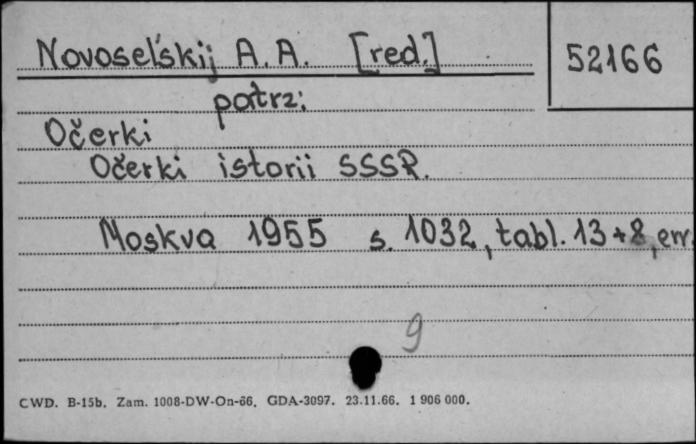 Novosel'skij A. A. [red.]
52166
patrz:
Očerki
Očerki istorii SSSR.
Moskva 1955 s. 1032, tabl. 13+8, err.
9
CWD. B-15b. Zam. 1008-DW-On-66. GDA-3097. 23.11.66. 1 906 000.